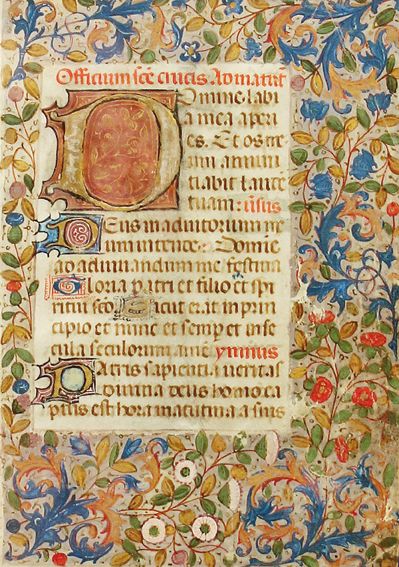 Officium sce crucis Ad matut
Domine labi
a mea aperi
es. Et os me
um annun
tiabit laude
tuam: ūsus
Deus in adiutorium me
um intende Domie
ad adiuuandum me festina
Gloria patri et filio et spi
ritui sco Sicut erat in prin
cipio et nunc et semper et in se
cula seculorum amē ymnus
Patris sapientia ueritas
diuina deus homo ca
ptus est hora matutina a suis